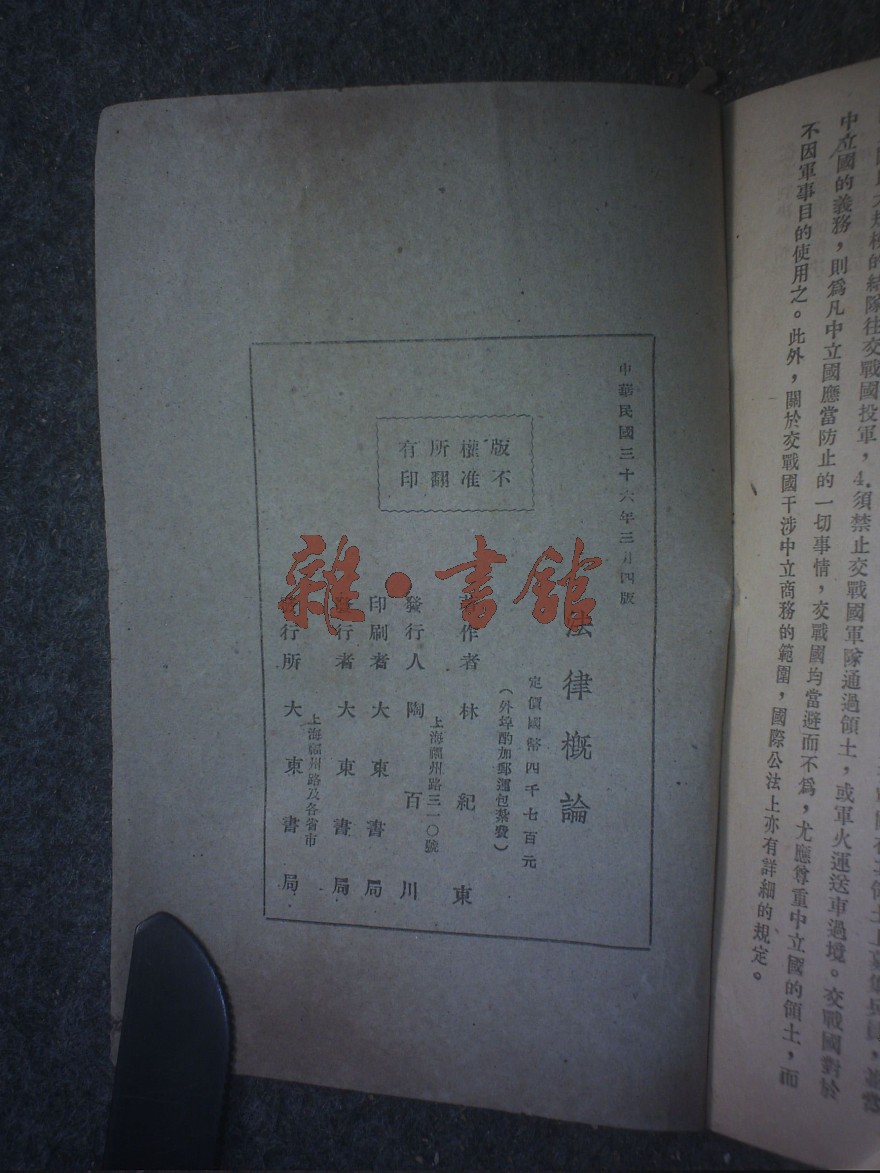 中立國的義務，則爲凡中立國應當防止的一切事情，交戰國均當避而不爲，尤應尊重中立國的領土，而
不因軍事目的使用之。此外，關於交戰國干涉中立商務的範圍，國際公法上亦有詳細的規定。
中華民國三十六年三月四版
法律概論
定價國幣四千七百元
（外埠酌加郵運包紮費）
著作者 林紀東
上海福州路三一〇號
發行人 陶百川
印刷者 大東書局
發行者 大東書局
上海福州路及各省市
發行所 大東書局
版權所有
不准翻印
雜·書館